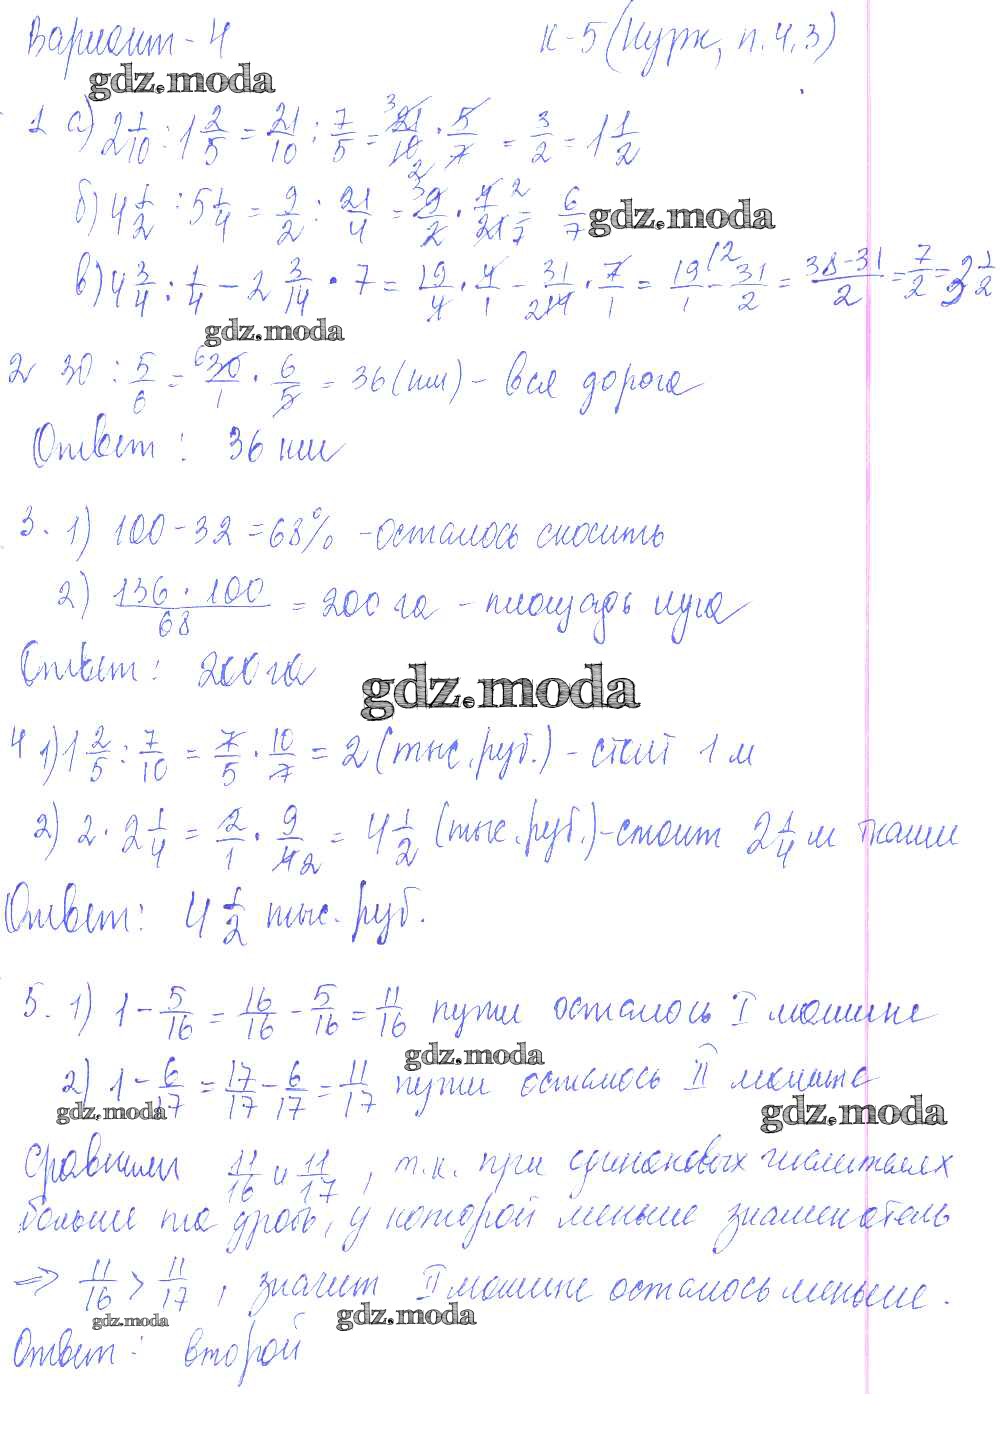 Вариант - 4 К-5 (Чурк, п. 4,3)
gdz.moda
1 а) 2 1/10 : 1 2/5 = 21/10 : 7/5 = 21/10 · 5/7 = 3/2 = 1 1/2
б) 4 1/2 : 5 1/4 = 9/2 : 21/4 = 9/2 · 4/21 = 6/7
gdz.moda
в) 4 3/4 : 1/4 - 2 3/14 · 7 = 19/4 · 4/1 - 31/14 · 7/1 = 19/1 - 31/2 = 38-31/2 = 7/2 = 3 1/2
gdz.moda
2 30 : 5/6 = 30/1 · 6/5 = 36 (км) - вся дорога
Ответ: 36 км
3. 1) 100 - 32 = 68% - осталось скосить
2) 136 · 100/68 = 200 га - площадь луга
Ответ: 200 га
gdz.moda
4 1) 1 2/5 : 7/10 = 7/5 · 10/7 = 2 (тыс. руб.) - стоит 1 м
2) 2 · 2 1/4 = 2/1 · 9/4 = 4 1/2 (тыс. руб.) - стоит 2 1/4 м ткани
Ответ: 4 1/2 тыс. руб.
5. 1) 1 - 5/16 = 16/16 - 5/16 = 11/16 пути осталось I машине
gdz.moda
2) 1 - 6/17 = 17/17 - 6/17 = 11/17 пути осталось II машине
gdz.moda
gdz.moda
Сравним 11/16 и 11/17, т.к. при одинаковых числителях
больше та дробь, у которой меньше знаменатель
=> 11/16 > 11/17, значит II машине осталось меньше.
gdz.moda
gdz.moda
Ответ: второй